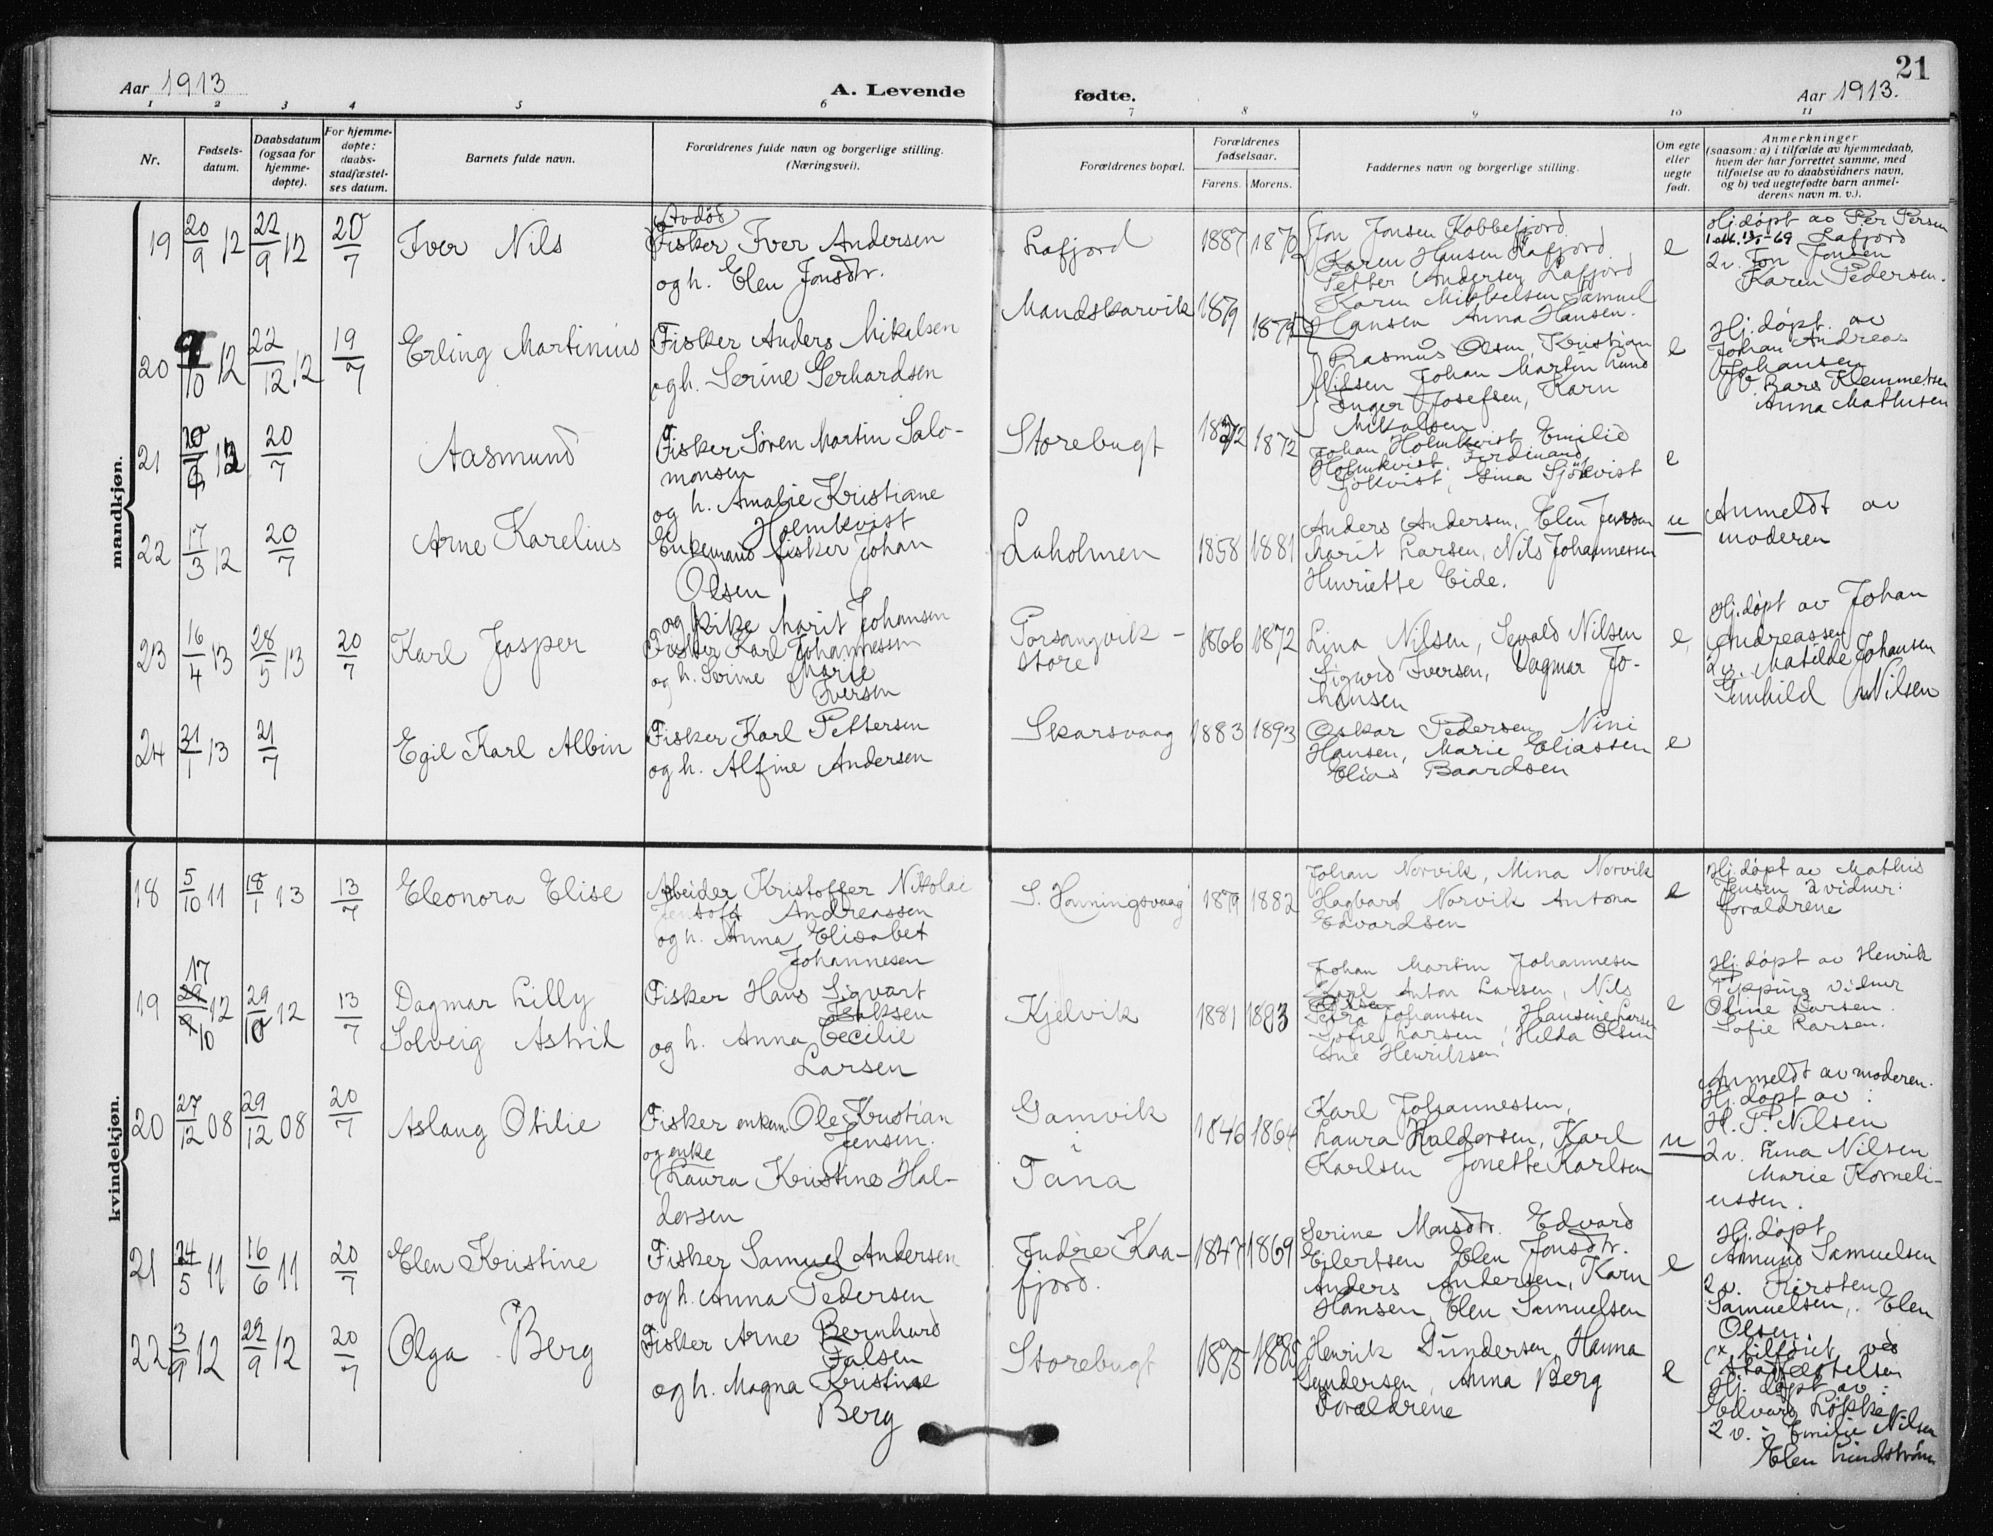 21
Aar 1913 A. Levende fødte. Aar 1913.
1 2 3 4 5 6 7 8 9 10 11
Nr.
Fødsels-
datum.
Daabsdatum
(ogsaa for
hjemme-
døpte).
For hjemme-
døpte:
daabs-
stadfæstel-
ses datum.
Barnets fulde navn.
Forældrenes fulde navn og borgerlige stilling.
(Næringsvei).
Forældrenes bopæl.
Forældrenes
fødselsaar.
Farens. Morens.
Faddernes navn og borgerlige stilling.
Om egte
eller
uegte
født.
Anmerkninger
(saasom: a) i tilfælde av hjemmedaab,
hvem der har forrettet samme, med
tilføielse av to daabsvidners navn,
og b) ved uegtefødte barn anmel-
derens navn m. v.).
mandkjøn.
19 20/9 12 22/9 12 20/7 Iver Nils
Avdød
Fisker Iver Andersen
og h. Elen Jonsdtr.
Lafjord 1887 1870
Jon Jonsen Kobbefjord.
Karen Hansen Kafjord.
Petter Andersen Lafjord
Karen Mikkelsen Samuel
Hansen Anna Hansen.
e
Hj. døpt av Per Persen
Lafjord
2 v. Jon Jonsen
Karen Pedersen.
20 9/10 12 22/12 12 19/7 Erling Martinius
Fisker Anders Mikelsen
og h. Serine Gerhardsen
Mandskarvik 1879 1879
Rasmus Olsen, Kristian
Nilsen Johan Martin Lund
Inger Josefsen, Karn
Mikalsen
e
Hj. døpt av
Johan Andreas
Johansen
Bars Klemmetsen
Anna Mathisen
21 20/7 Aasmund
Fisker Søren Martin Salo-
monsen
og h. Amalie Kristiane
Holmkvist
Storebugt 1872 1872
Johan Holmkvist Emilie
Holmkvist, Ferdinand
Sjøkvist, Gina Sjökvist
e
22 17/3 12 20/7 Arne Karelius
Enkemand fisker Johan
Olsen
og pike Marit Johansen
Laholmen 1858 1881
Anders Andersen, Elen Jensen
Marit Larsen, Nils Johannessen
Henriette Eide.
u
Anmeldt av
moderen
23 16/4 13 28/5 13 20/7 Karl Jasper
Fisker Karl Johannessen
og h. Serine Marie
Iversen
Porsangvik -
store
1866 1872
Lina Nilsen, Sevald Nilsen
Sigurd Iversen, Dagmar Jo-
hansen
e
Hj. døpt av Johan
Andreassen
2 v. Matilde Johansen
Gunhild Nilsen
24 31/1 13 21/7 Egil Karl Albin
Fisker Karl Pettersen
og h. Alfine Andersen
Skarsvaag 1883 1893
Oskar Pedersen, Nini
Hansen, Marie Eliassen
Elias Baardsen
e
kvindekjøn.
18 5/10 11 18/1 13 13/7 Eleonora Elise
Arbeider Kristoffer Nikolai
Jentoft Andreassen
og h. Anna Elisabet
Johannesen
S. Honningsvaag 1879 1882
Johan Norvik, Mina Norvik
Hagbart Norvik Antona
Edvardsen
e
Hj. døpt av Mathis
Jensen 2 vidner:
forældrene
19 17/10 12 29/10 12 13/7 Dagmar Lilly
Solveig Astrid
Fisker Hans Sigvart
Isaksen
og h. Anna Cecilie
Larsen
Kjelvik 1881 1893
Johan Martin Johannesen
Karl Anton Larsen, Nils
Olsen
Petra Johansen Hansine Larsen
Sofie Larsen, Hilda Olsen
Ane Henriksen
e
Hj. døpt av Henrik
Tipping vidner
Oline Larsen.
Sofie Larsen.
20 27/12 08 29/12 08 20/7 Aslaug Otilie
Fisker enkem. Ole Kristian
Jensen.
og enke
Laura Kristine Hal-
dorsen
Gamvik
i
Tana
1846 1864
Karl Johannessen,
Laura Haldorsen, Karl
Karlsen Jonette Karlsen
u
Anmeldt av moderen.
Hj. døpt av :
H. P. Nilsen
2 v. Lina Nilsen
Marie Korneli-
ussen.
21 24/5 11 16/6 11 20/7 Elen Kristine
Fisker Samuel Andersen
og h. Anna Pedersen
Indre Kaa-
fjord.
1847 1869
Serine Monsdtr. Edvard
Eilertsen Elen Jonsdtr.
Anders Andersen, Karn
Hansen, Elen Samuelsen
e
Hj. døpt
Amund Samuelsen
2 v. Kirsten
Samuelsen, Elen
Olsen.
22 3/9 12 22/9 12 20/7 Olga × Berg
Fisker Arne Bernhard
Falsen
og h. Magna Kristine
Berg
Storebugt 1875 1885
Henrik Gundersen, Hanna
Gundersen, Anna Berg
Forældrene
e
(× tilføiet ved
stadfæstelsen
Hj. døpt av :
Edvard Løkke
2 v. : Emilie Nilsen
Elen Lindstrøm